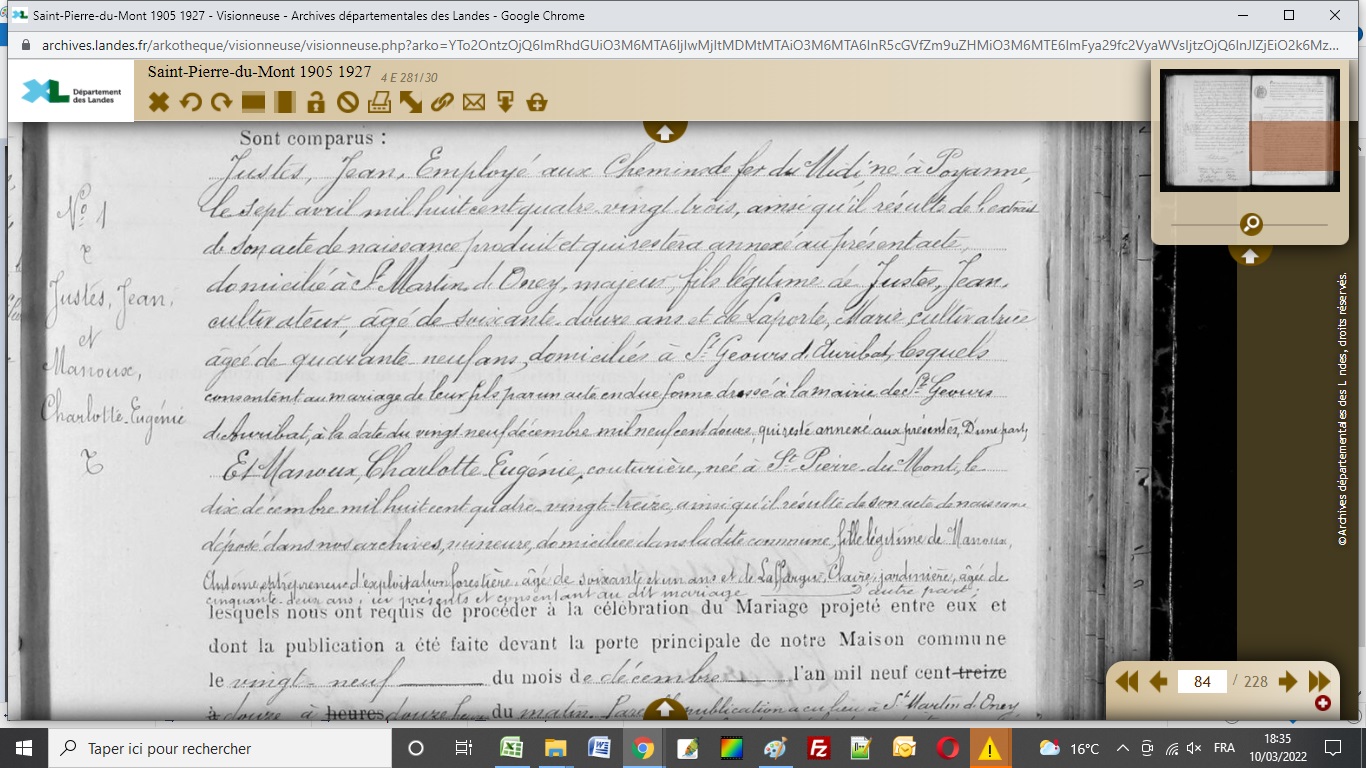 Saint-Pierre-du-Mont 1905 1927 - Visionneuse - Archives départementales des Landes - Google Chrome
Saint-Pierre-du-Mont 1905 1927 4 E 281/30
Département
des Landes
Sont comparus :
Justes, Jean, Employé aux Chemins de fer du Midi, né à Poyanne,
le sept avril mil huit cent quatre-vingt trois, ainsi qu'il résulte de l'extrait
de son acte de naissance produit et qui restera annexé au présent acte,
domicilié à St Martin d'Oney, majeur, fils légitime de Justes, Jean,
cultivateur, âgé de soixante-douze ans et de Laporte, Marie, cultivatrice
âgée de quarante neuf ans, domiciliés à St Geours d'Auribat, lesquels
consentent au mariage de leur fils par un acte en due forme dressé à la mairie de St Geours
d'Auribat, à la date du vingt neuf décembre mil neuf cent douze, qui resté annexé aux présentes, D'une part,
Et Manoux, Charlotte Eugénie, couturière, née à St Pierre-du-Mont, le
dix décembre mil huit cent quatre-vingt-treize, ainsi qu'il résulte de son acte de naissance
déposé dans nos archives, mineure, domiciliée dans ladite commune, fille légitime de Manoux,
Antoine, entrepreneur d'exploitation forestière, âgé de soixante et un ans et de Laffargue, Claire, jardinière, âgée de
cinquante-deux ans, ici présents et consentant au dit mariage D'autre part;
lesquels nous ont requis de procéder à la célébration du Mariage projeté entre eux et
dont la publication a été faite devant la porte principale de notre Maison commune
le vingt-neuf du mois de décembre l'an mil neuf cent treize
à douze à heures douze du matin. publication a eu lieu à St Martin d'Oney,
No 1
Justes, Jean,
et
Manoux,
Charlotte-Eugénie
©Archives départementales des Landes, droits réservés.
84 / 228
Taper ici pour rechercher
16°C
FRA
18:35
10/03/2022